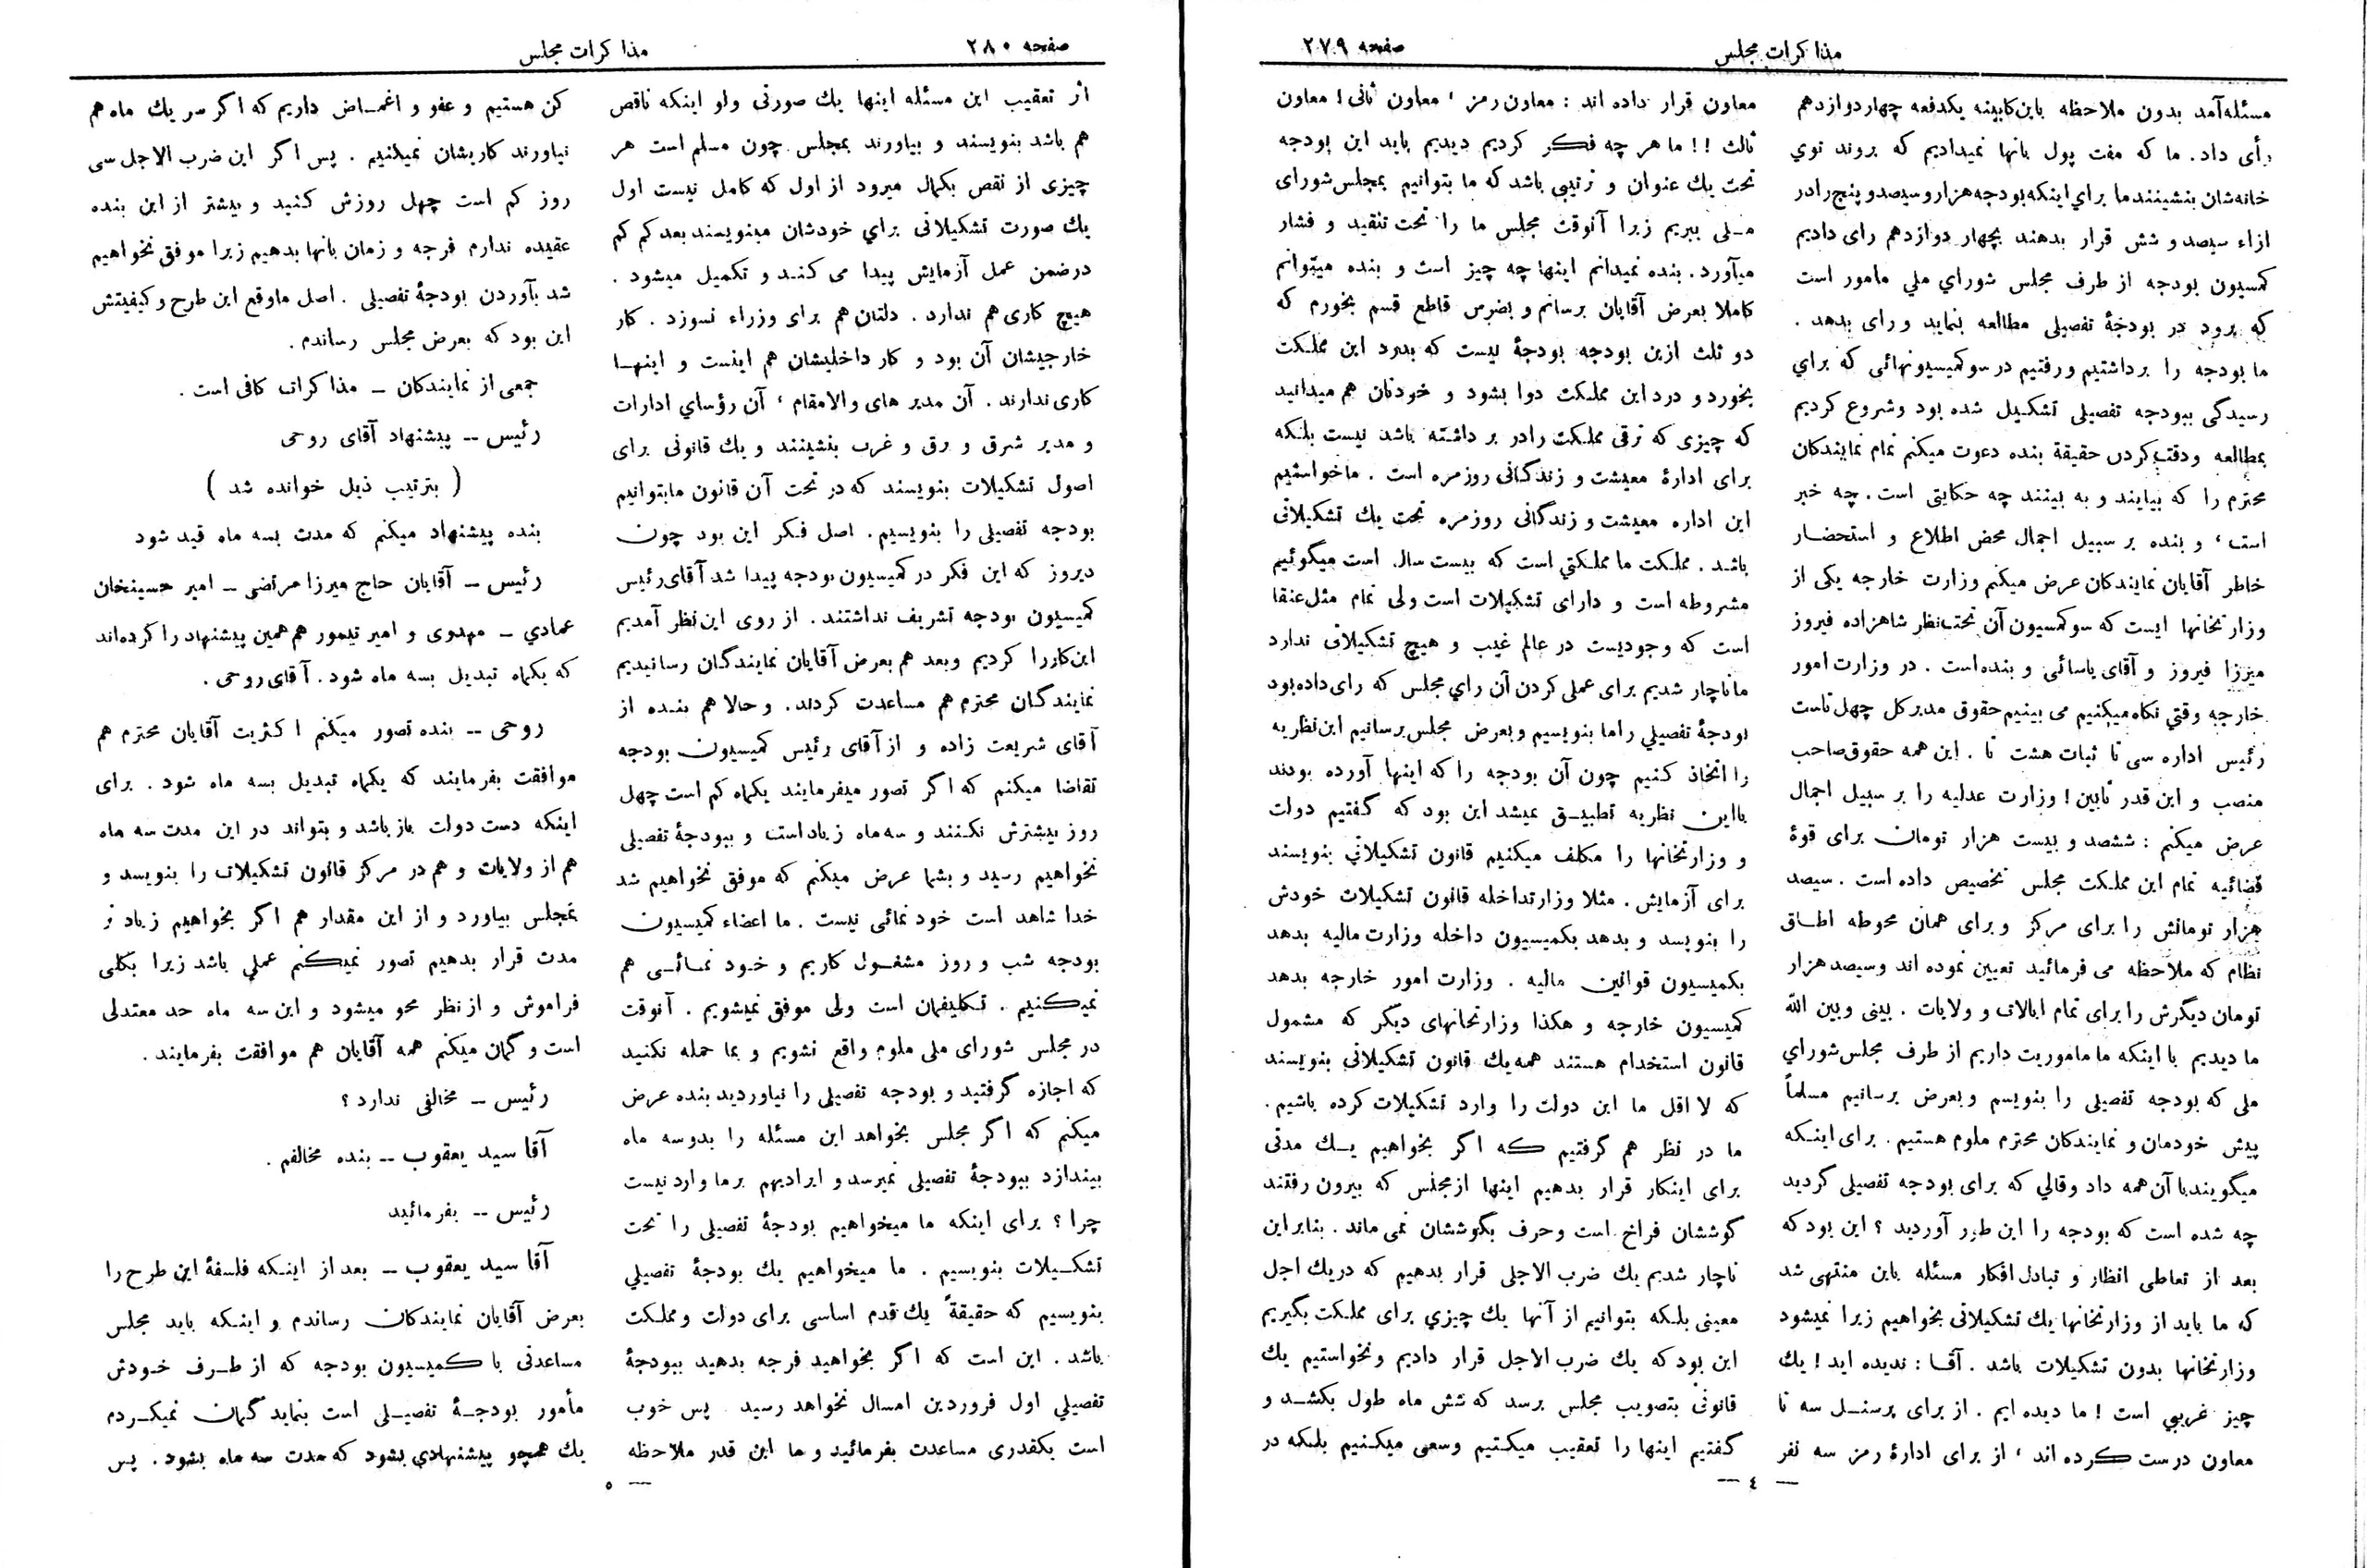 مذاکرات مجلس صفحه ۲۷۹
مسئله آمد بدون ملاحظه باین کابینه یکدفعه چهار دوازدهم
رأی داد. ما که مفت پول بانها نمیدادیم که بروند توي
خانه‌شان بنشینند ما براي اینکه بودجه هزار و سیصد و پنج را در
ازاء سیصد و شش قرار بدهند بچهار دوازدهم رای دادیم
کمسیون بودجه از طرف مجلس شوراي ملي مامور است
که برود در بودجهٔ تفصیلی مطالعه بنماید و رای بدهد .
ما بودجه را برداشتیم و رفتیم در سوکمیسیونهائی که براي
رسیدگی ببودجه تفصیلی تشکیل شده بود و شروع کردیم
بمطالعه و دقت کردن حقیقة بنده دعوت میکنم تمام نمایندکان
محترم را که بیایند و به بینند چه حکایتی است . چه خبر
است ، و بنده بر سبیل اجمال محض اطلاع و استحضار
خاطر آقایان نمایندکان عرض میکنم وزارت خارجه یکی از
وزارتخانها ایست که سوکمسیون آن تحت نظر شاهزاده فیروز
میرزا فیروز و آقای یاسائی و بنده است . در وزارت امور
خارجه وقتي نکاه میکنیم می بینیم حقوق مدیر کل چهل تاست
رئیس اداره سی تا ثبات هشت تا . این همه حقوق صاحب
منصب و این قدر تابین ! وزارت عدلیه را بر سبیل اجمال
عرض میکنم : ششصد و بیست هزار تومان برای قوهٔ
قضائیه تمام این مملکت مجلس تخصیص داده است . سیصد
هزار تومانش را برای مرکز و برای همان محوطه اطاق
نظام که ملاحظه می فرمائید تعیین نموده اند و سیصد هزار
تومان دیگرش را برای تمام ایالات و ولایات . بینی و بین الله
ما دیدیم با اینکه ما ماموریت داریم از طرف مجلس شوراي
ملی که بودجه تفصیلی را بنویسم و بعرض برسانیم مسلماً
پیش خودمان و نمایندکان محترم ملوم هستیم . برای اینکه
میگویند با آن همه داد و قالي که برای بودجه تفصیلی گردید
چه شده است که بودجه را این طور آوردید ؟ این بود که
بعد از تعاطی انظار و تبادل افکار مسئله باین منتهی شد
که ما باید از وزارتخانها یك تشکیلاتی بخواهیم زیرا نمیشود
وزارتخانها بدون تشکیلات باشد . آقا : ندیده اید ! یك
چیز غریبي است ! ما دیده ایم . از برای پرسنل سه تا
معاون درست کرده اند ، از برای ادارهٔ رمز سه نفر
معاون قرار داده اند : معاون رمز ، معاون ثانی ! معاون
ثالث !! ما هر چه فکر کردیم دیدیم باید این بودجه
تحت یك عنوان و ترتیبي باشد که ما بتوانیم بمجلس شورای
ملی ببریم زیرا آنوقت مجلس ما را تحت تنقید و فشار
میآورد . بنده نمیدانم اینها چه چیز است و بنده میتوانم
کاملا بعرض آقایان برسانم و بضرس قاطع قسم بخورم که
دو ثلث ازین بودجه بودجهٔ نیست که بدرد این مملکت
بخورد و درد این مملکت دوا بشود و خودتان هم میدانید
که چیزی که ترقی مملکت را در بر داشته باشد نیست بلکه
برای ادارهٔ معیشت و زندگانی روزمره است . ما خواستیم
این اداره معیشت و زندگانی روزمره تحت یك تشکیلاتی
باشد . مملکت ما مملکتي است که بیست سال است میگوئیم
مشروطه است و دارای تشکیلات است ولی تمام مثل عنقا
است که وجودیست در عالم غیب و هیچ تشکیلاتی ندارد
ما ناچار شدیم برای عملی کردن آن راي مجلس که رای داده بود
بودجهٔ تفصیلي را ما بنویسیم و بعرض مجلس برسانیم این نظریه
را اتخاذ کنیم چون آن بودجه را که اینها آورده بودند
با این نظریه تطبیق نمیشد این بود که گفتیم دولت
و وزارتخانها را مکلف میکنیم قانون تشکیلاتي بنویسند
برای آزمایش . مثلا وزارتداخله قانون تشکیلات خودش
را بنویسد و بدهد بکمیسیون داخله وزارت مالیه بدهد
بکمیسیون قوانین مالیه . وزارت امور خارجه بدهد
کمیسیون خارجه و هکذا وزارتخانهای دیگر که مشمول
قانون استخدام هستند همه یك قانون تشکیلاتی بنویسند
که لا اقل ما این دولت را وارد تشکیلات کرده باشیم .
ما در نظر هم گرفتیم که اگر بخواهیم یك مدتی
برای اینکار قرار بدهیم اینها از مجلس که بیرون رفتند
گوششان فراخ است و حرف بگوششان نمی ماند . بنابراین
ناچار شدیم یك ضرب الاجلی قرار بدهیم که در یك اجل
معینی بلکه بتوانیم از آنها یك چیزي برای مملکت بگیریم
این بود که یك ضرب الاجل قرار دادیم و نخواستیم یك
قانونی بتصویب مجلس برسد که شش ماه طول بکشد و
گفتیم اینها را تعقیب میکنیم و سعی میکنیم بلکه در
— ٤ —
مذاکرات مجلس صفحه ۲۸۰
اثر تعقیب این مسئله اینها یك صورتی ولو اینکه ناقص
هم باشد بنویسند و بیاورند بمجلس چون مسلم است هر
چیزی از نقص بکمال میرود از اول که کامل نیست اول
یك صورت تشکیلاتی براي خودشان مینویسند بعد کم کم
در ضمن عمل آزمایش پیدا می کند و تکمیل میشود .
هیچ کاری هم ندارد . دلتان هم برای وزراء نسوزد . کار
خارجیشان آن بود و کار داخلیشان هم اینست و اینها
کاری ندارند . آن مدیر های والامقام ، آن رؤساي ادارات
و مدیر شرق و برق و غرب بنشینند و یك قانونی برای
اصول تشکیلات بنویسند که در تحت آن قانون ما بتوانیم
بودجه تفصیلی را بنویسیم . اصل فکر این بود چون
دیروز که این فکر در کمیسیون بودجه پیدا شد آقای رئیس
کمیسیون بودجه تشریف نداشتند . از روی این نظر آمدیم
این کار را کردیم و بعد هم بعرض آقایان نمایندگان رسانیدیم
نمایندگان محترم هم مساعدت کردند . و حالا هم بنده از
آقای شریعت زاده و از آقای رئیس کمیسیون بودجه
تقاضا میکنم که اگر تصور میفرمایند یکماه کم است چهل
روز بیشترش نکنند و سه ماه زیاد است و ببودجهٔ تفصیلی
نخواهیم رسید و بشما عرض میکنم که موفق نخواهیم شد
خدا شاهد است خود نمائی نیست . ما اعضاء کمیسیون
بودجه شب و روز مشغول کاریم و خود نمائی هم
نمیکنیم . تکلیفمان است ولی موفق نمیشویم . آنوقت
در مجلس شورای ملی ملوم واقع نشویم و بما حمله نکنید
که اجازه گرفتید و بودجه تفصیلی را نیاوردید بنده عرض
میکنم که اگر مجلس بخواهد این مسئله را بدو سه ماه
بیندازد ببودجهٔ تفصیلی نمیرسد و ایرادیهم بر ما وارد نیست
چرا ؟ برای اینکه ما میخواهیم بودجهٔ تفصیلی را تحت
تشکیلات بنویسیم . ما میخواهیم یك بودجهٔ تفصیلي
بنویسیم که حقیقةً یك قدم اساسی برای دولت و مملکت
باشد . این است که اگر بخواهید فرجه بدهید ببودجهٔ
تفصیلي اول فروردین امسال نخواهد رسید . پس خوب
است یکقدری مساعدت بفرمائید و ما این قدر ملاحظه
کن هستیم و عفو و اغماض داریم که اگر سر یك ماه هم
نیاورند کاریشان نمیکنیم . پس اگر این ضرب الاجل سی
روز کم است چهل روزش کنید و بیشتر از این بنده
عقیده ندارم فرجه و زمان بانها بدهیم زیرا موفق نخواهیم
شد بآوردن بودجهٔ تفصیلی . اصل ماوقع این طرح و کیفیتش
این بود که بعرض مجلس رساندم .
جمعی از نمایندکان ـ مذاکرات کافی است .
رئیس -- پیشنهاد آقای روحی
( بترتیب ذیل خوانده شد )
بنده پیشنهاد میکنم که مدت بسه ماه قید شود
رئیس ـ آقایان حاج میرزا مرتضی ـ امیر حسینخان
عمادي ـ مهدوی و امیر تیمور هم همین پیشنهاد را کرده‌اند
که یکماه تبدیل بسه ماه شود . آقای روحی .
روحی -- بنده تصور میکنم اکثریت آقایان محترم هم
موافقت بفرمایند که یکماه تبدیل بسه ماه شود . برای
اینکه دست دولت باز باشد و بتواند در این مدت سه ماه
هم از ولایات و هم در مرکز قانون تشکیلات را بنویسد و
بمجلس بیاورد و از این مقدار هم اگر بخواهیم زیاد تر
مدت قرار بدهیم تصور نمیکنم عملي باشد زیرا بکلی
فراموش و از نظر محو میشود و این سه ماه حد معتدلی
است و گمان میکنم همه آقایان هم موافقت بفرمایند .
رئیس ـ مخالفی ندارد ؟
آقا سید یعقوب -- بنده مخالفم .
رئیس -- بفرمائید
آقا سید یعقوب ـ بعد از اینکه فلسفهٔ این طرح را
بعرض آقایان نمایندکان رساندم و اینکه باید مجلس
مساعدتی با کمیسیون بودجه که از طرف خودش
مأمور بودجهٔ تفصیلی است بنماید گمان نمیکردم
یك همچو پیشنهادي بشود که مدت سه ماه بشود . پس
— ٥